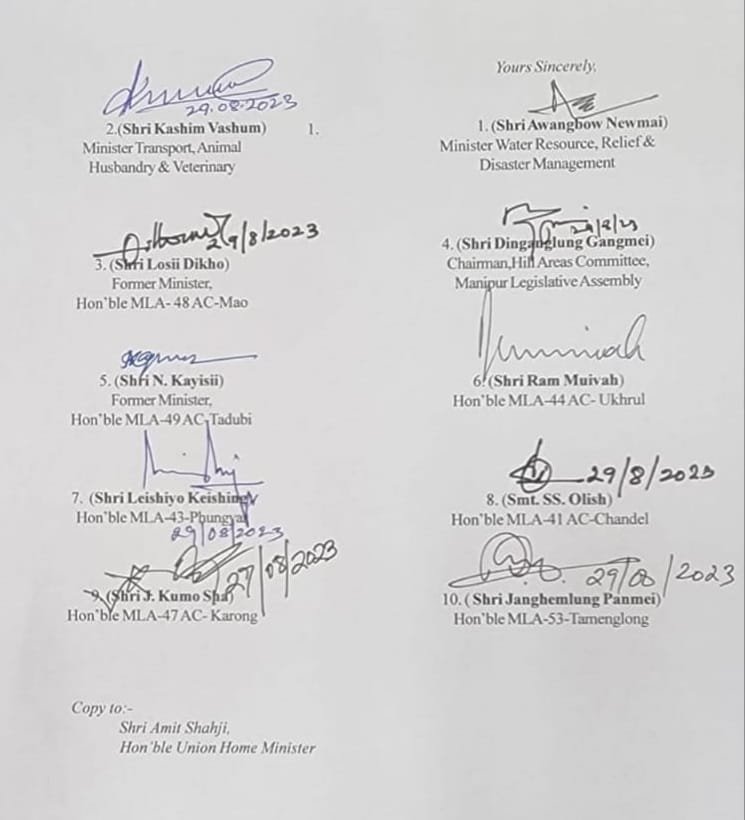 Yours Sincerely,
29.08.2023
2.(Shri Kashim Vashum)
1.
Minister Transport, Animal
Husbandry & Veterinary
1. (Shri Awangbow Newmai)
Minister Water Resource, Relief &
Disaster Management
29/8/2023
3. (Shri Losii Dikho)
Former Minister,
Hon'ble MLA- 48 AC-Mao
29/8/23
4. (Shri Dinganglung Gangmei)
Chairman,Hill Areas Committee,
Manipur Legislative Assembly
5. (Shri N. Kayisii)
Former Minister,
Hon'ble MLA-49 AC-Tadubi
6. (Shri Ram Muivah)
Hon'ble MLA-44 AC- Ukhrul
7. (Shri Leishiyo Keishing)
Hon'ble MLA-43-Phungyar
29/08/2023
29/8/2023
8. (Smt. SS. Olish)
Hon'ble MLA-41 AC-Chandel
27/08/2023
9. (Shri J. Kumo Sha)
Hon'ble MLA-47 AC- Karong
29/08/2023
10. ( Shri Janghemlung Panmei)
Hon'ble MLA-53-Tamenglong
Copy to:-
Shri Amit Shahji,
Hon'ble Union Home Minister